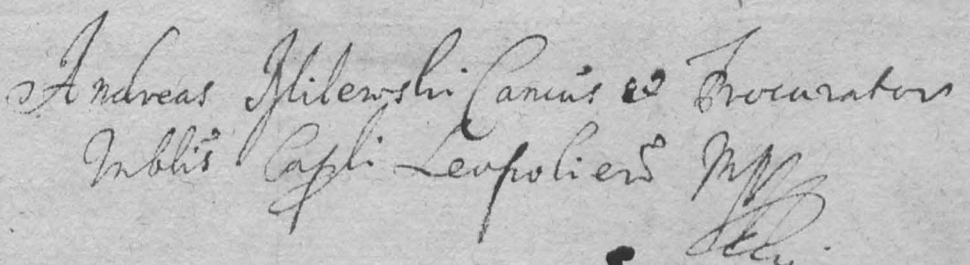 Andreas Milewski Cancus et Procurator
Vnblis Capli Leopolien̄s Mp